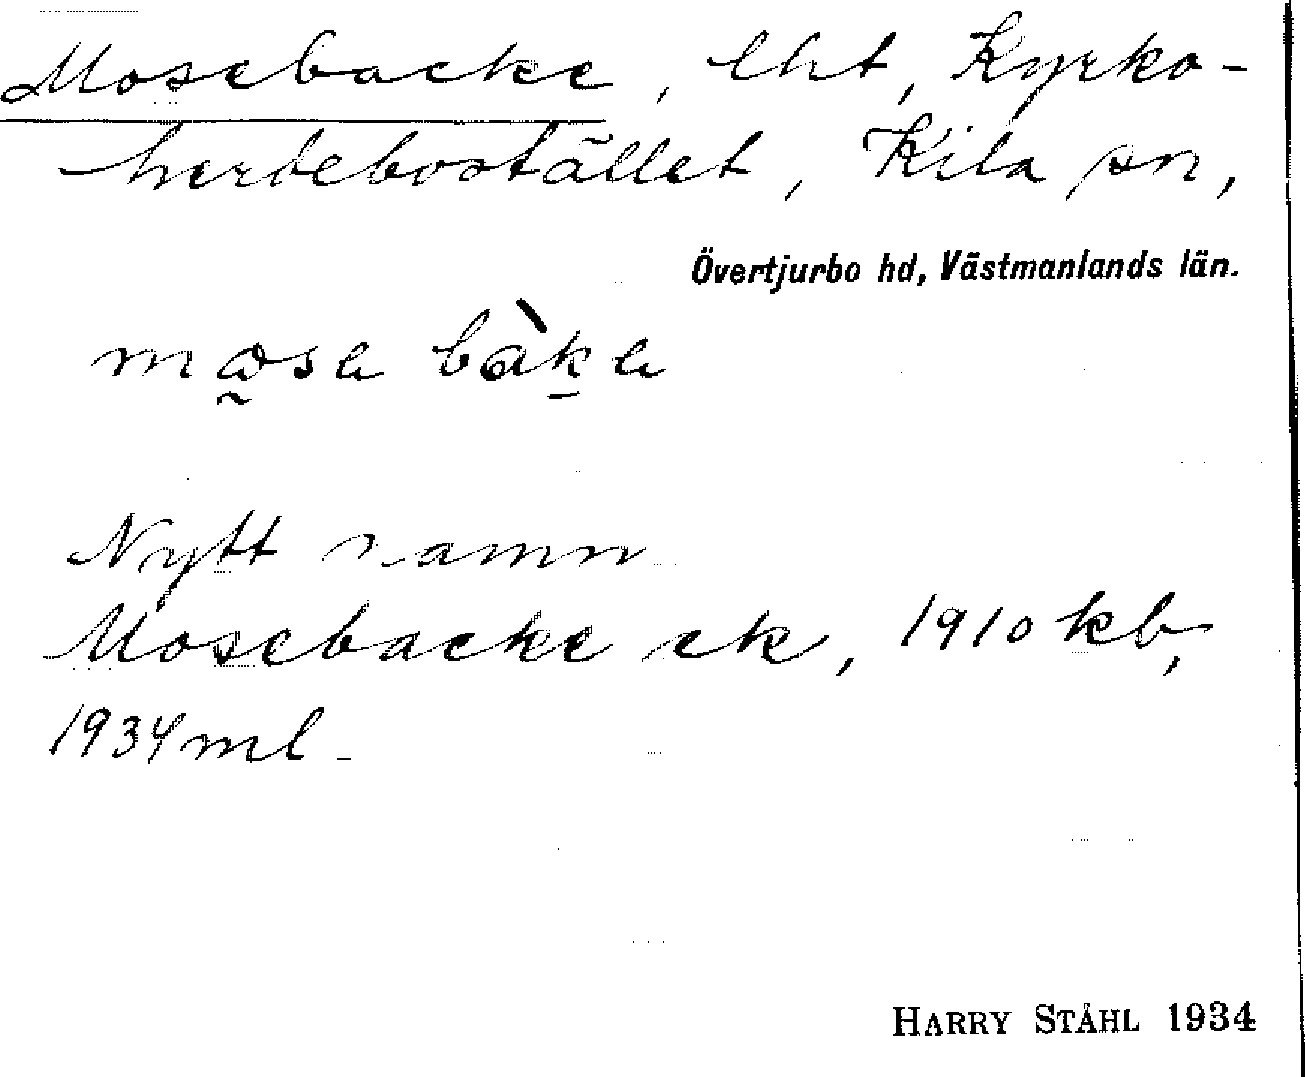 Mosebacke, lht, Kyrko-
herdebostället, Kila sn,
Övertjurbo hd, Västmanlands län.
Nytt namn
Mosebacke ek, 1910 kb,
1934 ml.
HARRY STÅHL 1934